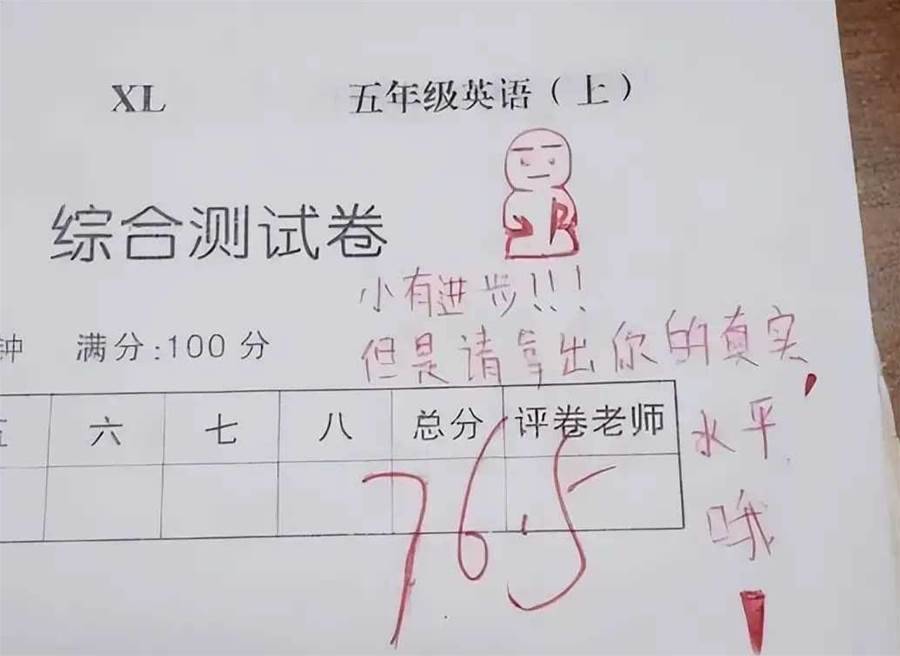 XL 五年级英语（上）
综合测试卷
小有进步!!!
钟 满分:100 分
但是请拿出你的真实
水平
哦!
六 七 八 总分 评卷老师
76.5